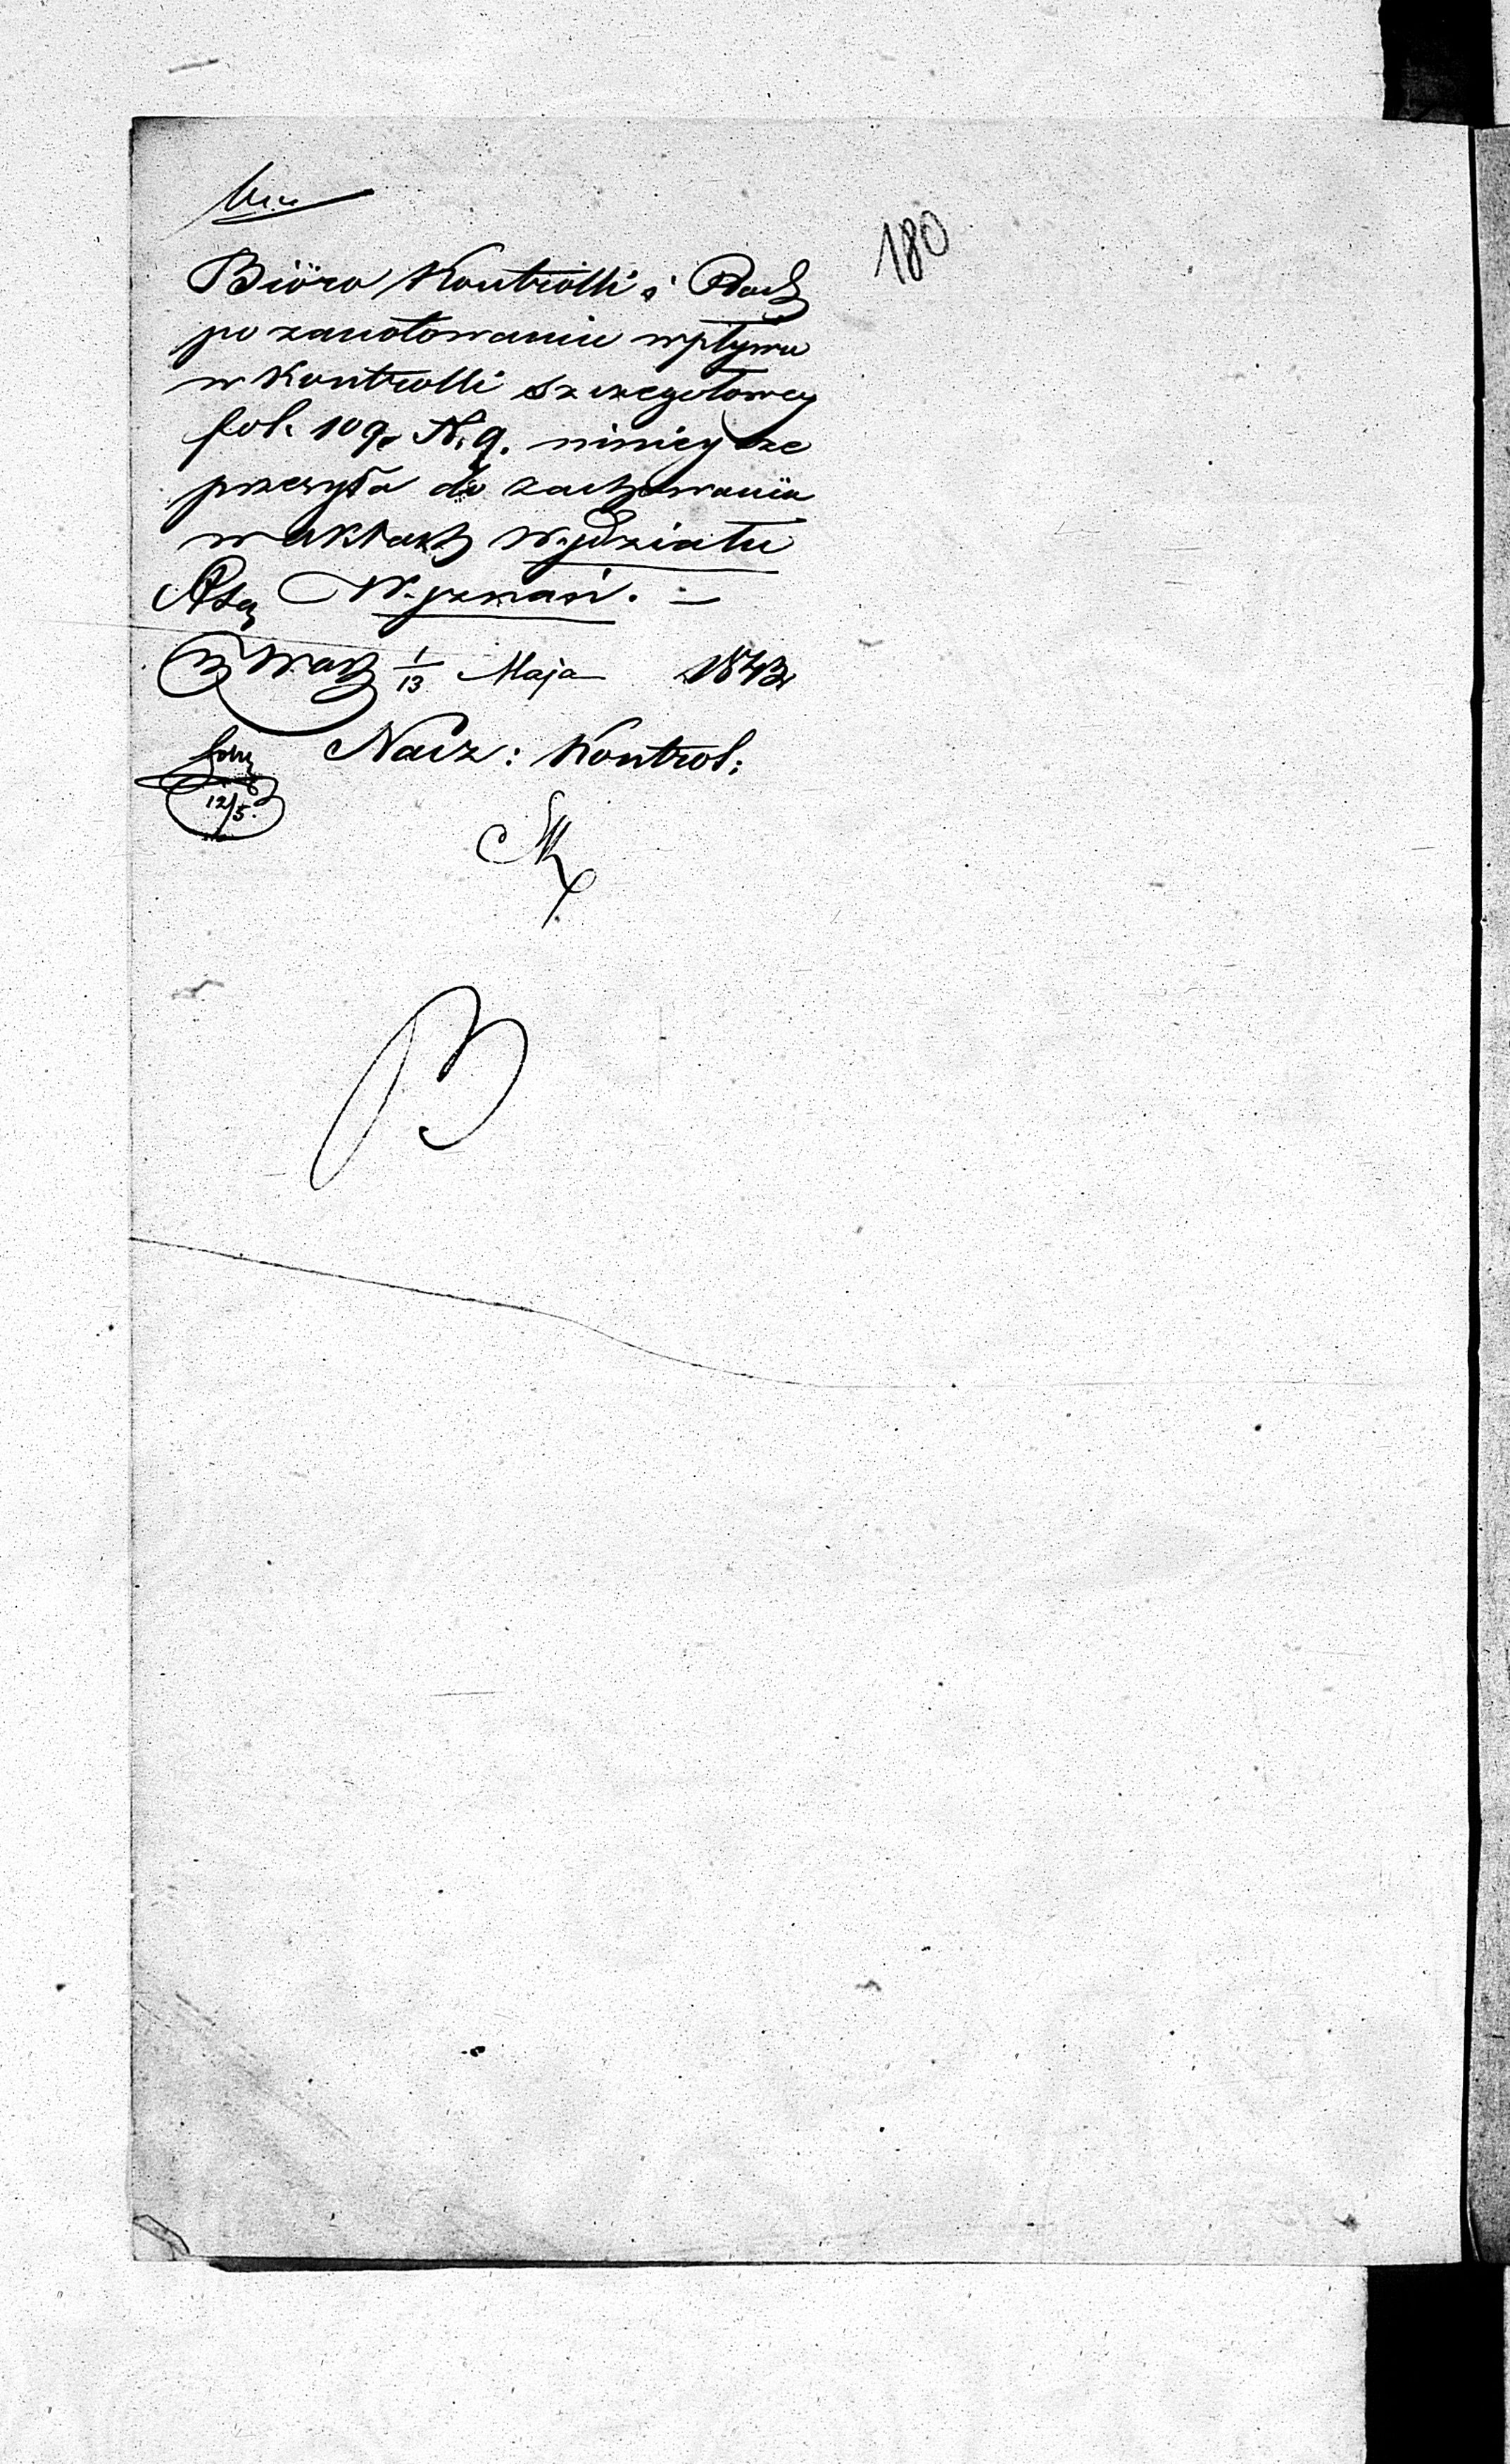 180
Biöro Kontrolli i Rach
po zanotowaniu wpływu
w Kontrolli szczegołowey
fol. 109. N. 9. ninieysze
przesyła do zachowania
w aktach Wydziału
Wyznań. —
w Warsz 1/13 Maja 1843
Nacz: Kontrol:
12/5.